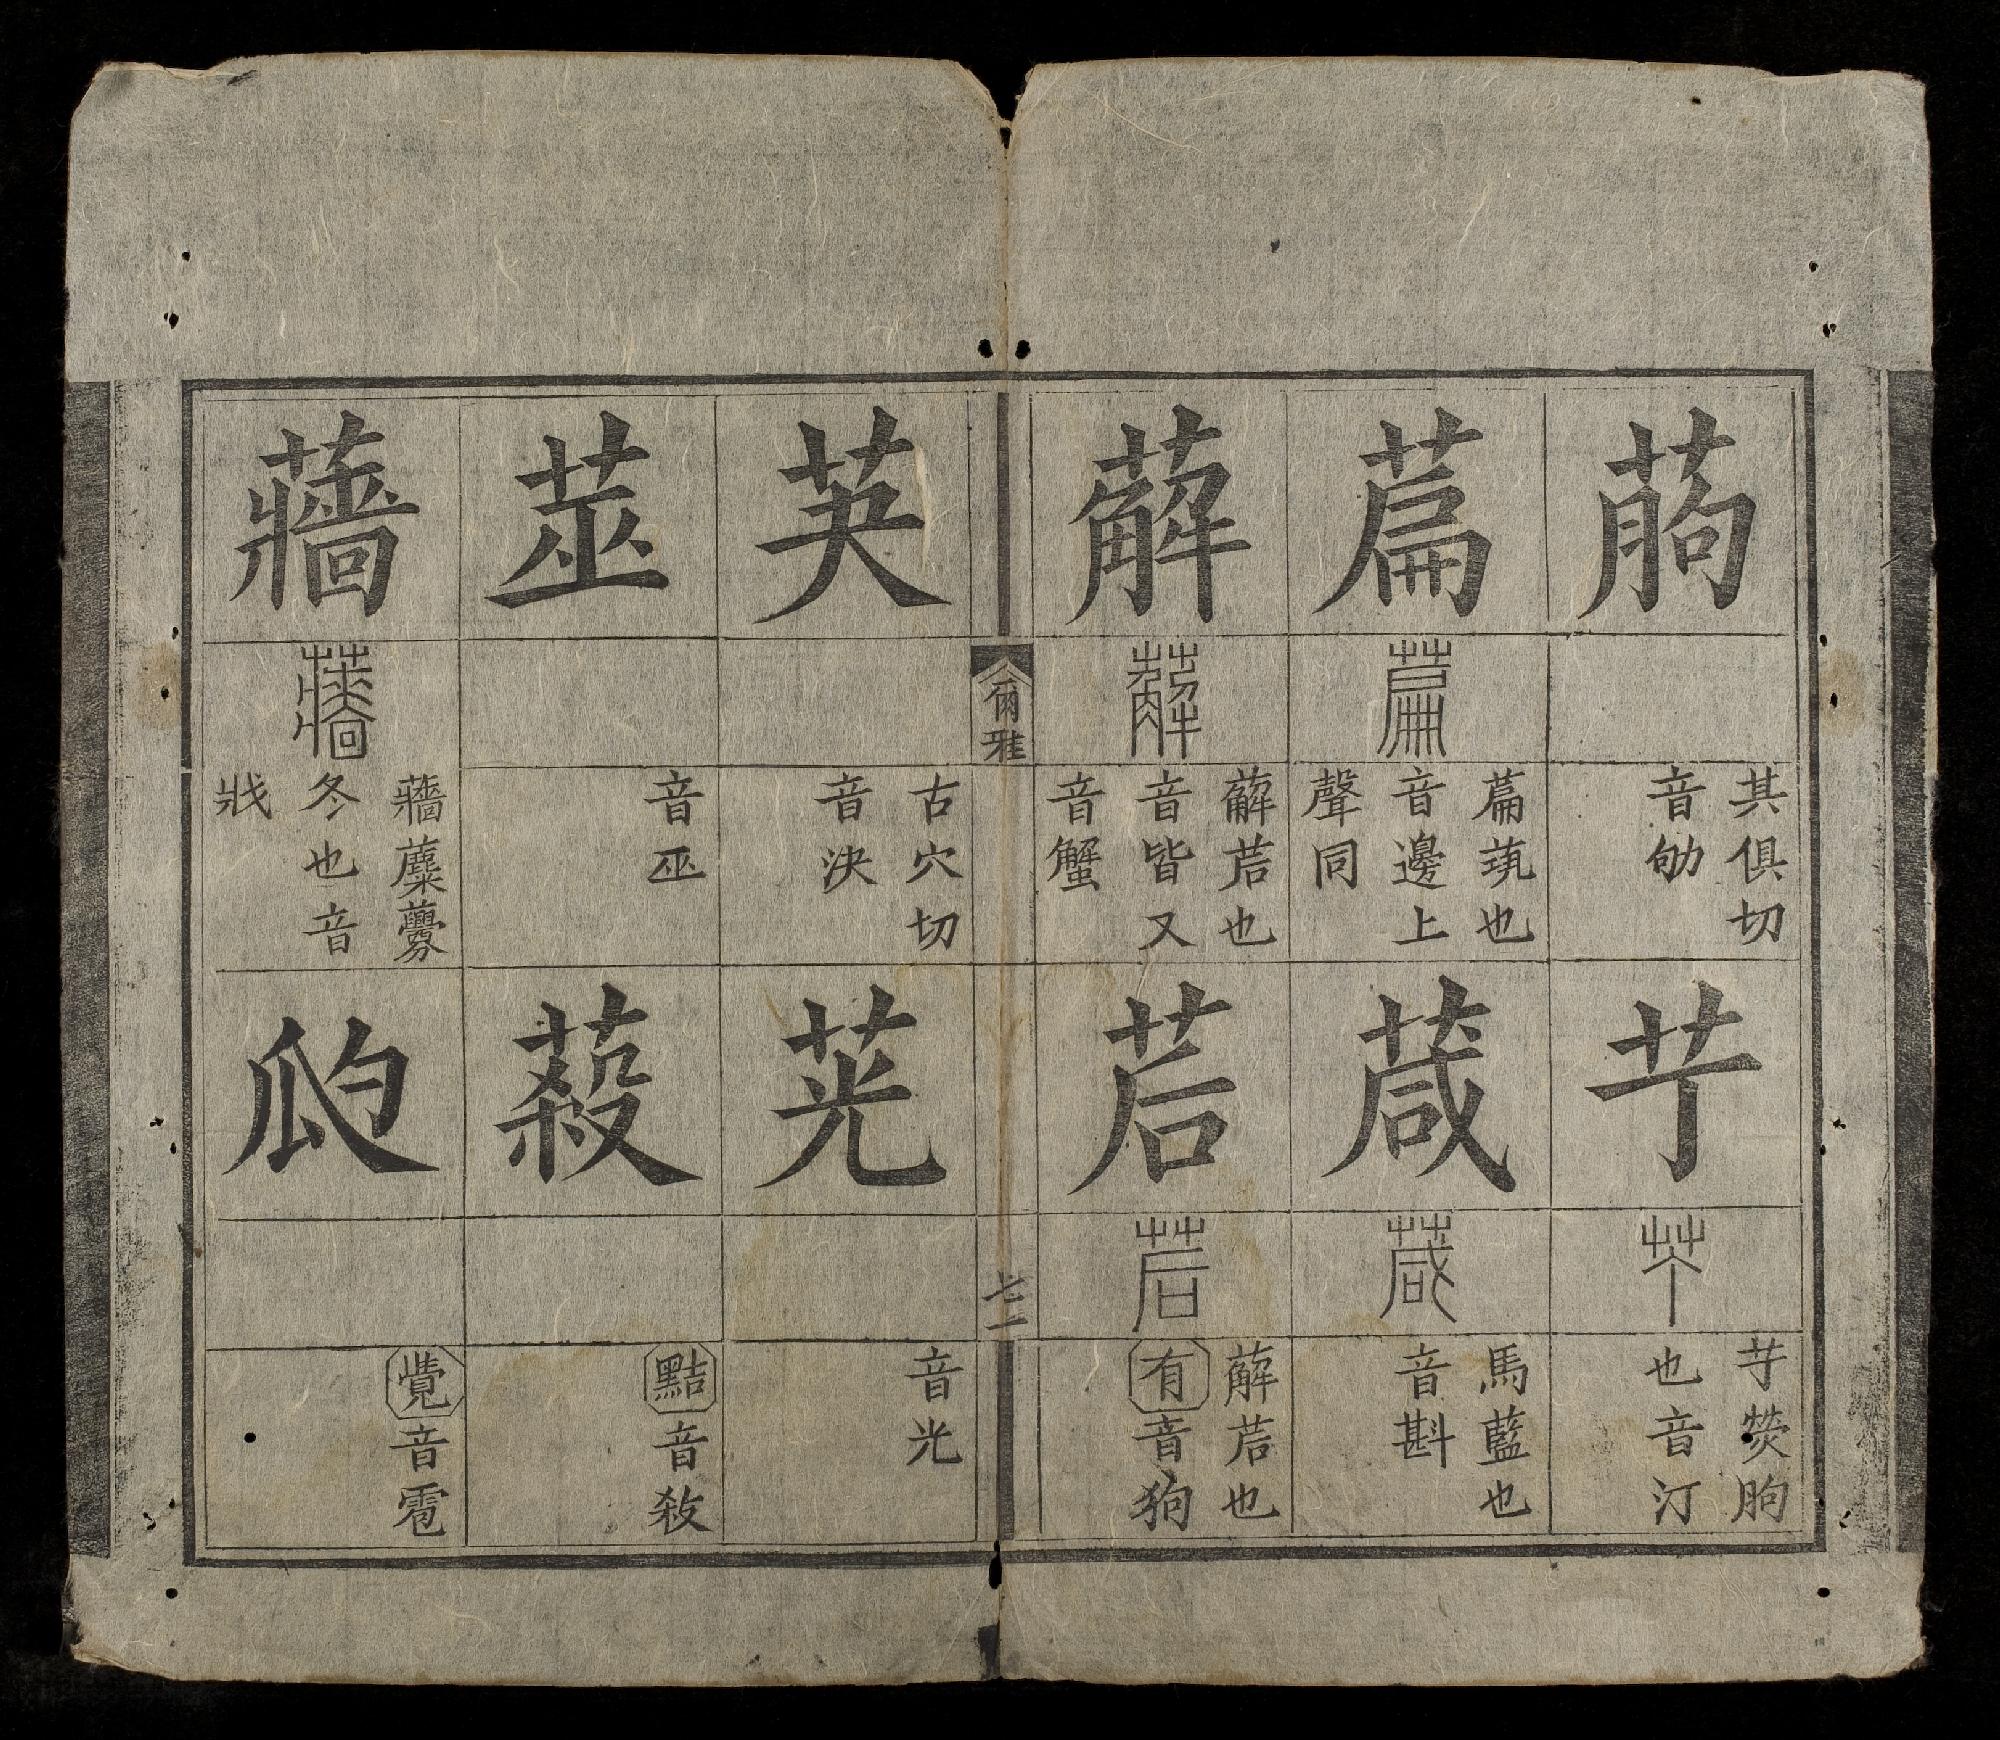 葋
其俱切
音劬
艼
艼
艼熒朐
也音汀
萹
萹
萹茿也
音邊上
聲同
葴
葴
馬藍也
音斟
薢
薢
薢茩也
音皆又
音蟹
茩
茩
薢茩也
有音狗
爾雅
七二
芵
古穴切
音決
茪
音光
莁
音巫
蔱
黠音殺
蘠
蘠
蘠蘪虋
冬也音
戕
瓝
覺音雹